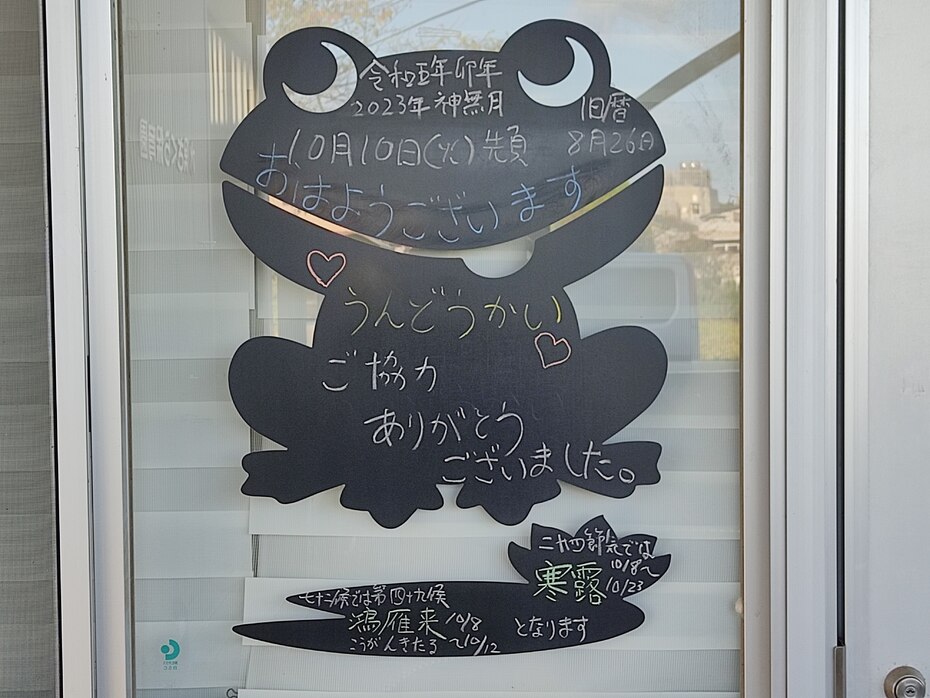 令和五年卯年
2023年 神無月
旧暦
10月10日(火)先負
8月26日
おはようございます
うんどうかい
ご協力
ありがとう
ございました。
二十四節気では
寒露
10/8〜
10/23
七十二候では第四十九候
鴻雁来 10/8
こうがんきたる 〜10/12
となります